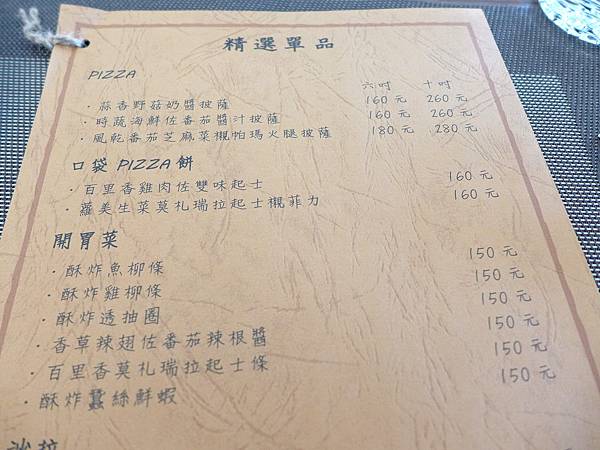 精選單品
PIZZA 六吋 十吋
·蒜香野菇奶醬披薩 160元 260元
·時蔬海鮮佐番茄醬汁披薩 160元 260元
·風乾番茄芝麻菜襯帕瑪火腿披薩 180元 280元
口袋 PIZZA 餅
·百里香雞肉佐雙味起士 160元
·蘿美生菜莫札瑞拉起士襯菲力 160元
開胃菜
·酥炸魚柳條 150元
·酥炸雞柳條 150元
·酥炸透抽圈 150元
·香草辣翅佐番茄辣根醬 150元
·百里香莫札瑞拉起士條 150元
·酥炸蠶絲鮮蝦 150元
沙拉